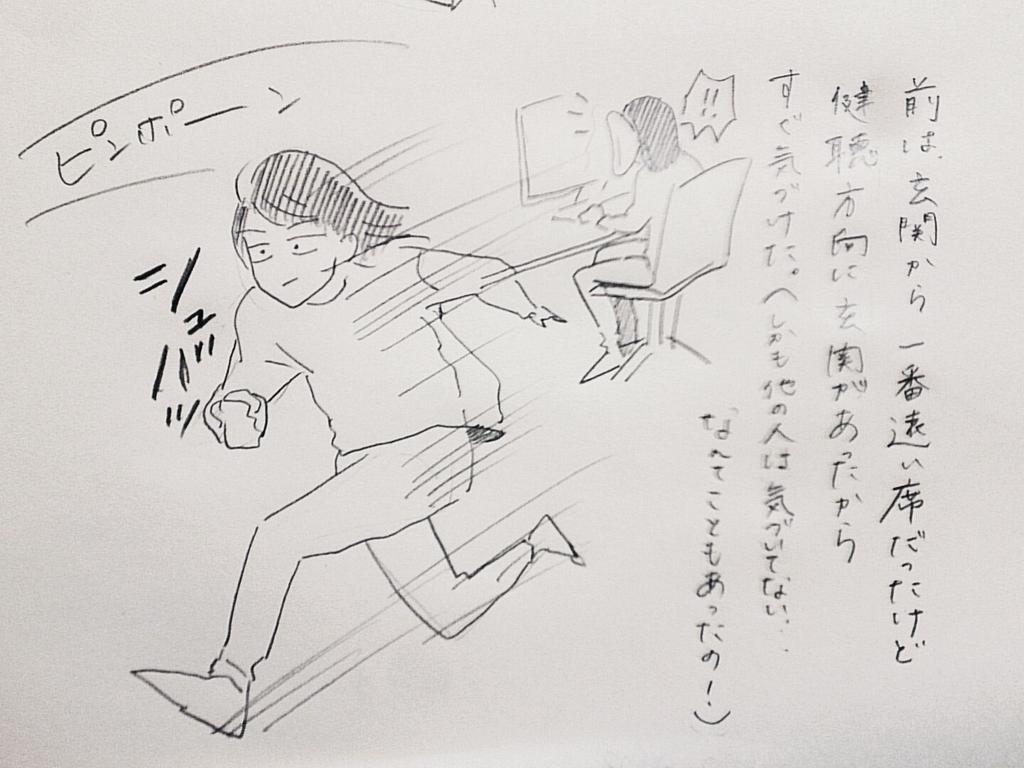 前は、玄関から一番遠い席だったけど
健聴方向に玄関があったから
すぐ気づけた。(しかも他の人は気づいてない…
なんてこともあったの!)
!!
ピンポーン
シュバッ